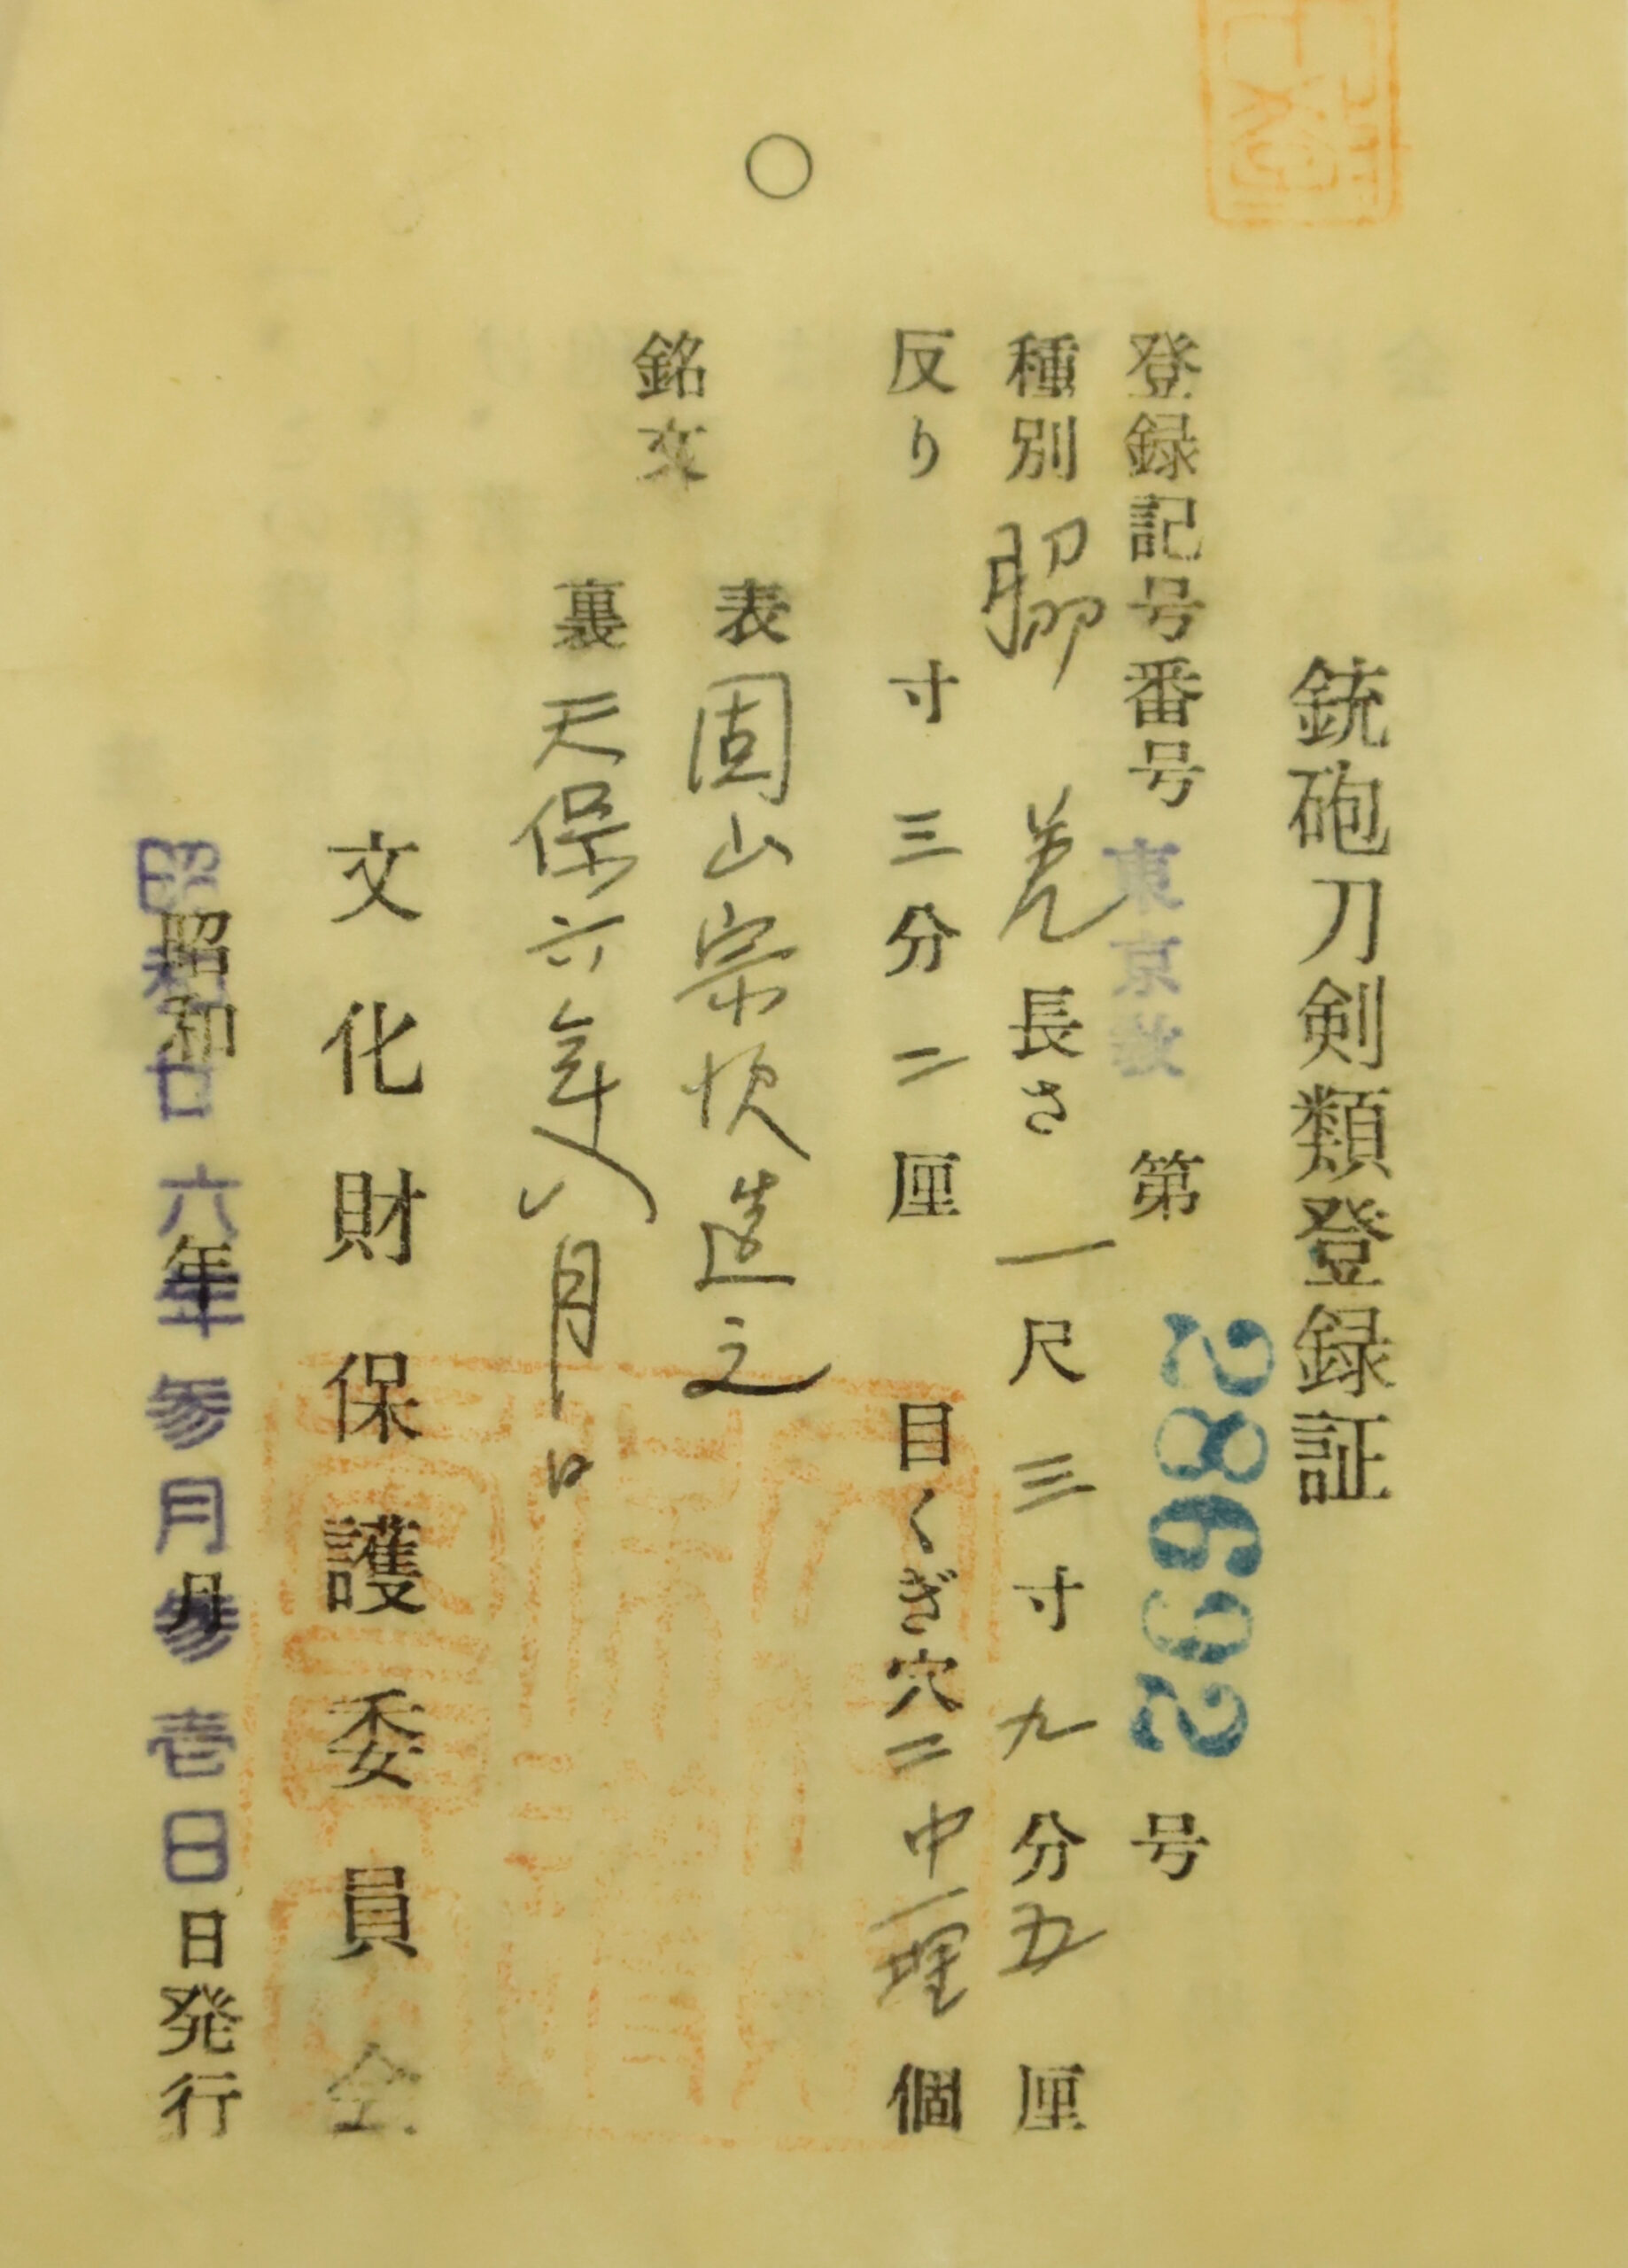 銃砲刀剣類登録証
登録記号番号 東京教 第 28692 号
種別 脇差 長さ 一尺三寸九分五厘
反り 寸三分二厘 目くぎ穴二中一埋個
銘文
表 固山宗次造之
裏 天保六年八月日
文化財保護委員会
昭和 年 月 日発行
昭和廿六年参月参壱日